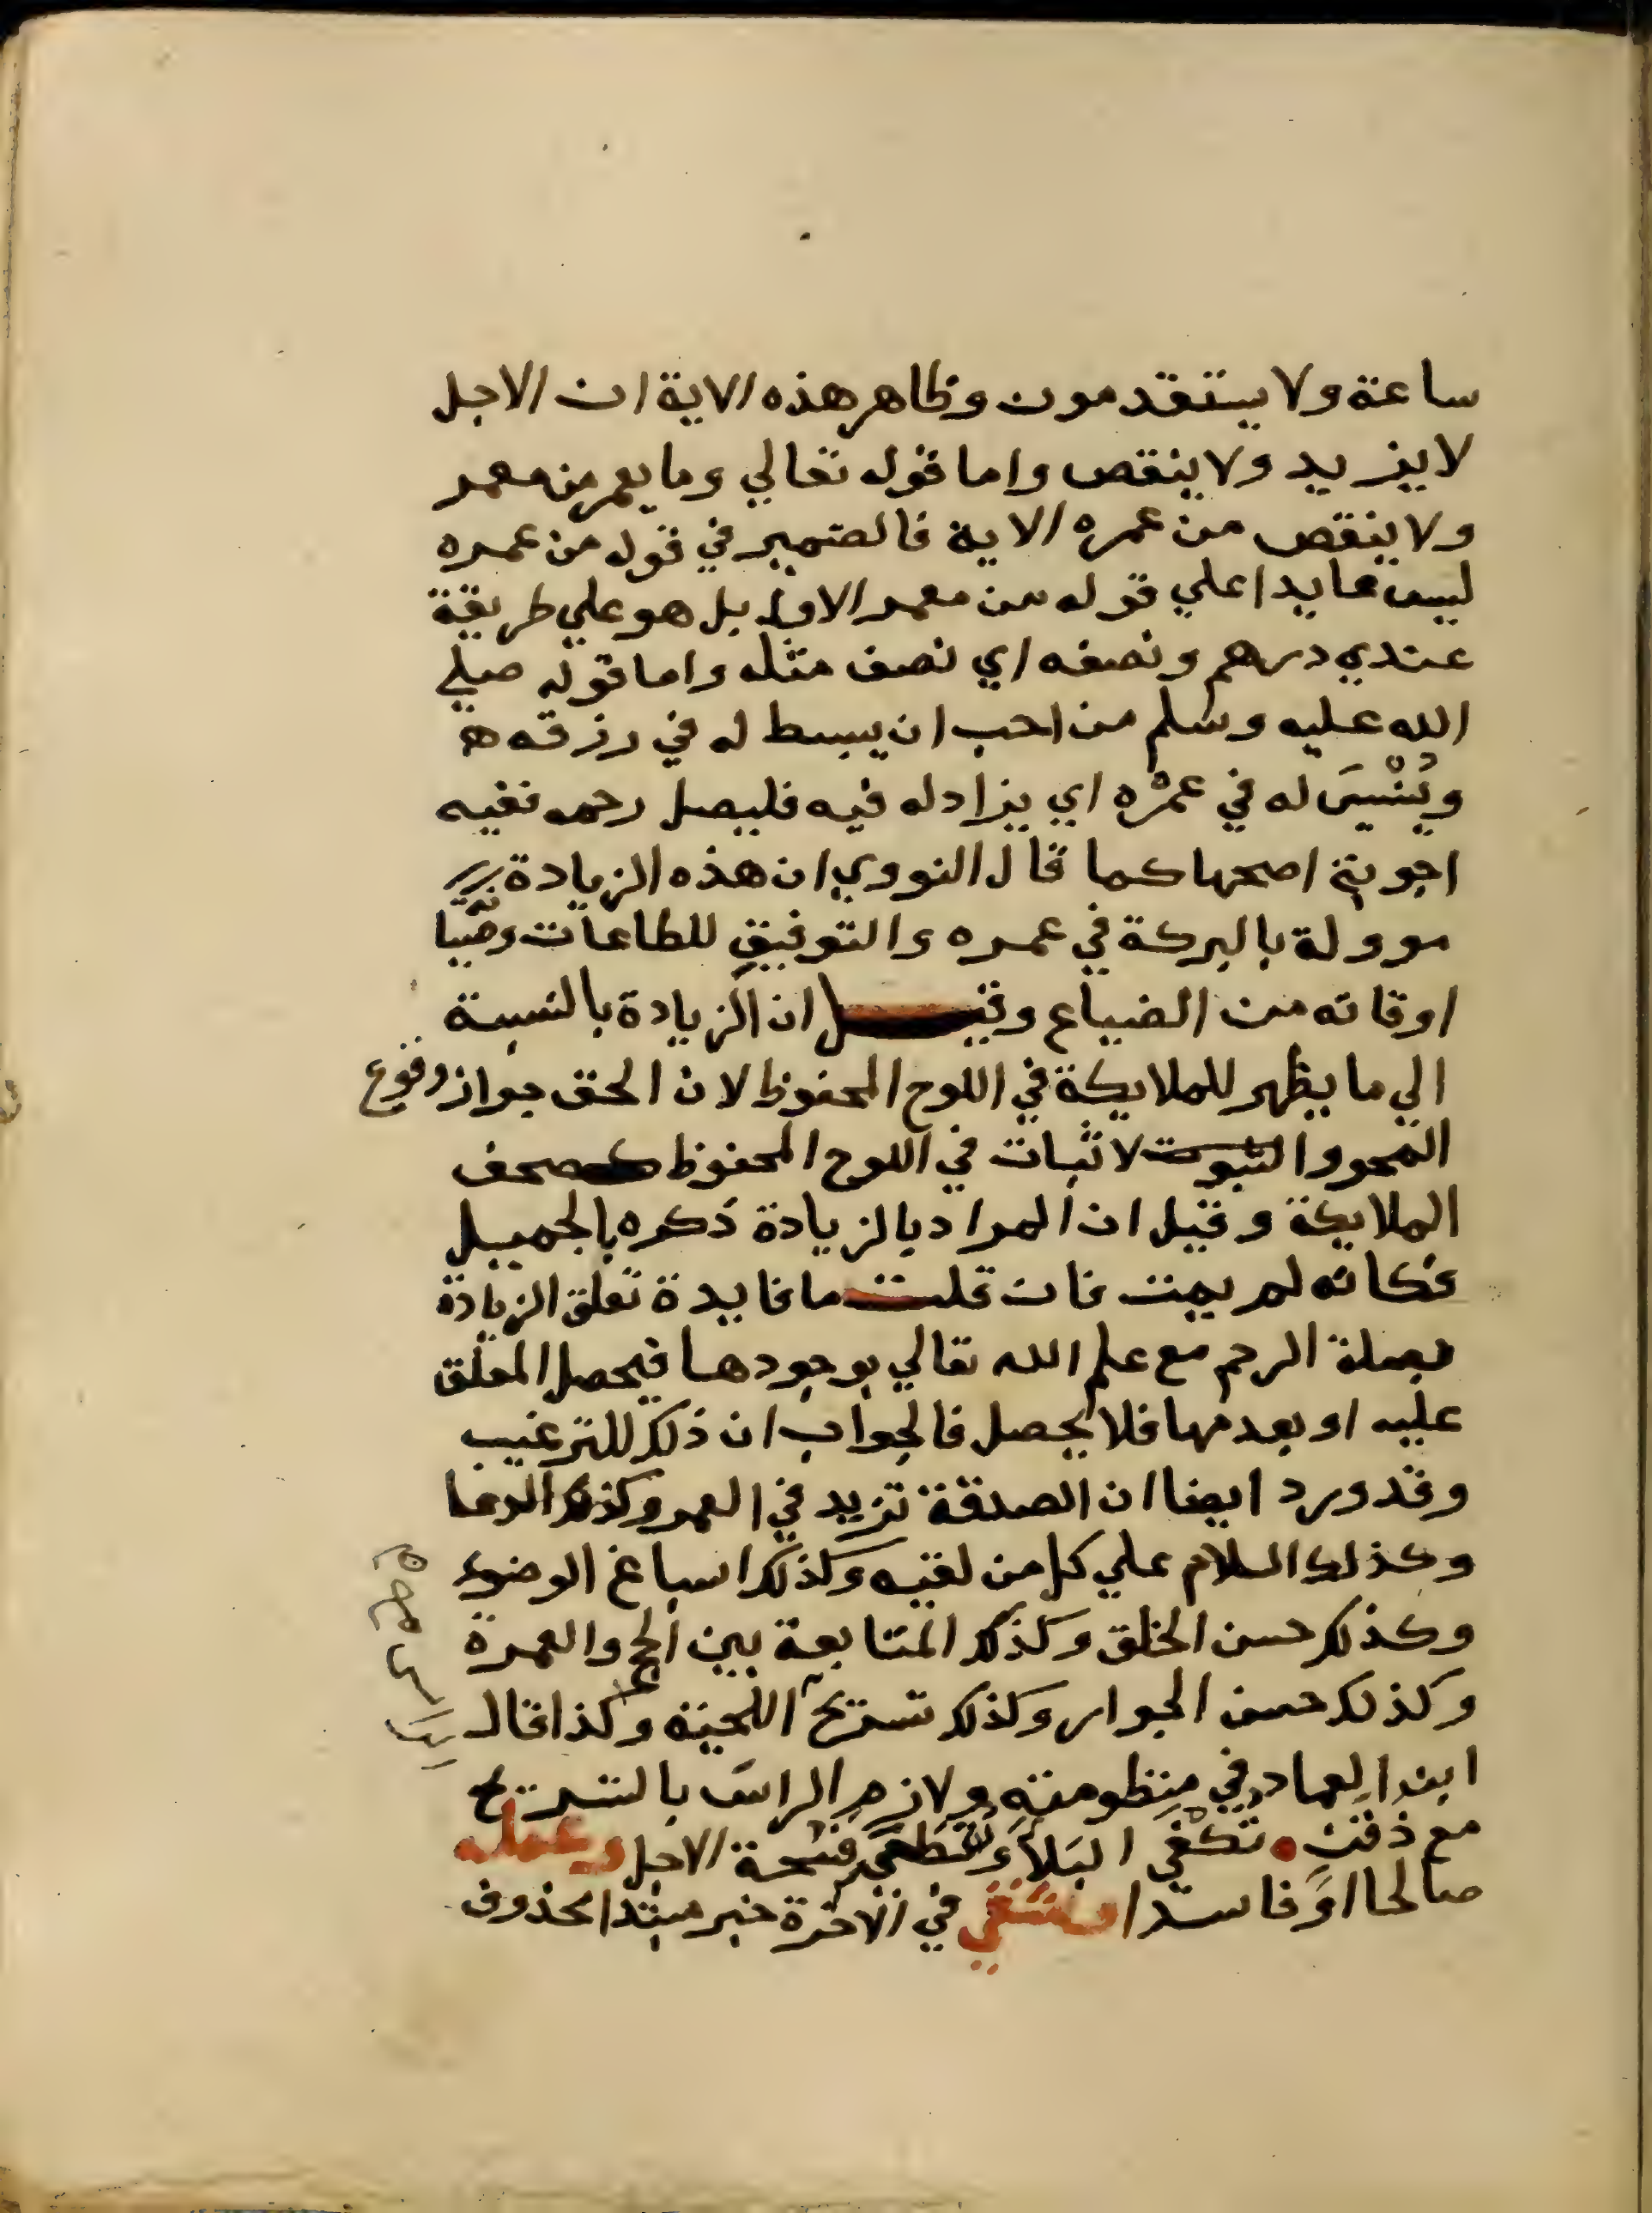 ساعة ولا يستقدمون وظاهر هذه الاية ان الاجل
لا يزيد ولا ينقص واما قوله تعالي وما يعمر من معمر
ولا ينقص من عمره الاية فالضمير في قوله من عمره
ليس عايدا علي قوله من معمر الاول بل هو علي طريقة
عندي درهم ونصفه اي نصف مثله واما قوله صلي
الله عليه وسلم من احب ان يبسط له في رزقه
ويُنْسَى له في عمْره اي يزاد له فيه فليصل رحمه ففيه
اجوبة اصحها كما قال النووي ان هذه الزيادة
موولة بالبركة في عمره والتوفيق للطاعات وصيانة
اوقاته من الضياع وقيل ان الزيادة بالنسبة
الي ما يظهر للملايكة في اللوح المحفوظ لان الحق جواز وقوع
المحو والثبوت لاثبات في اللوح المحفوظ كصحف
الملايكة وقيل ان المراد بالزيادة ذكره بالجميل
فكانه لم يمت فان قلت ما فايدة تعلق الزيادة
بصلة الرحم مع علم الله تعالي بوجودها فيحصل المعلق
عليه او بعدمها فلا يحصل فالجواب ان ذلك للترغيب
وقد ورد ايضا ان الصدقة تزيد في العمر وكذلك الدعا
وكذلك السلام علي كل من لقيه وكذلك اسباغ الوضوء
وكذلك حسن الخلق وكذلك المتابعة بين الحج والعمرة
وكذلك حسن الجوار وكذلك تسريح اللحية وكذا قال
ابن العماد في منظومته ولازم الراس بالتسريح
مع ذقن تكفي البلا وتعطى فسحة الاجل وعمله
صالحا او فاسدا وشقي في الاخرة خبر مبتدا محذوف